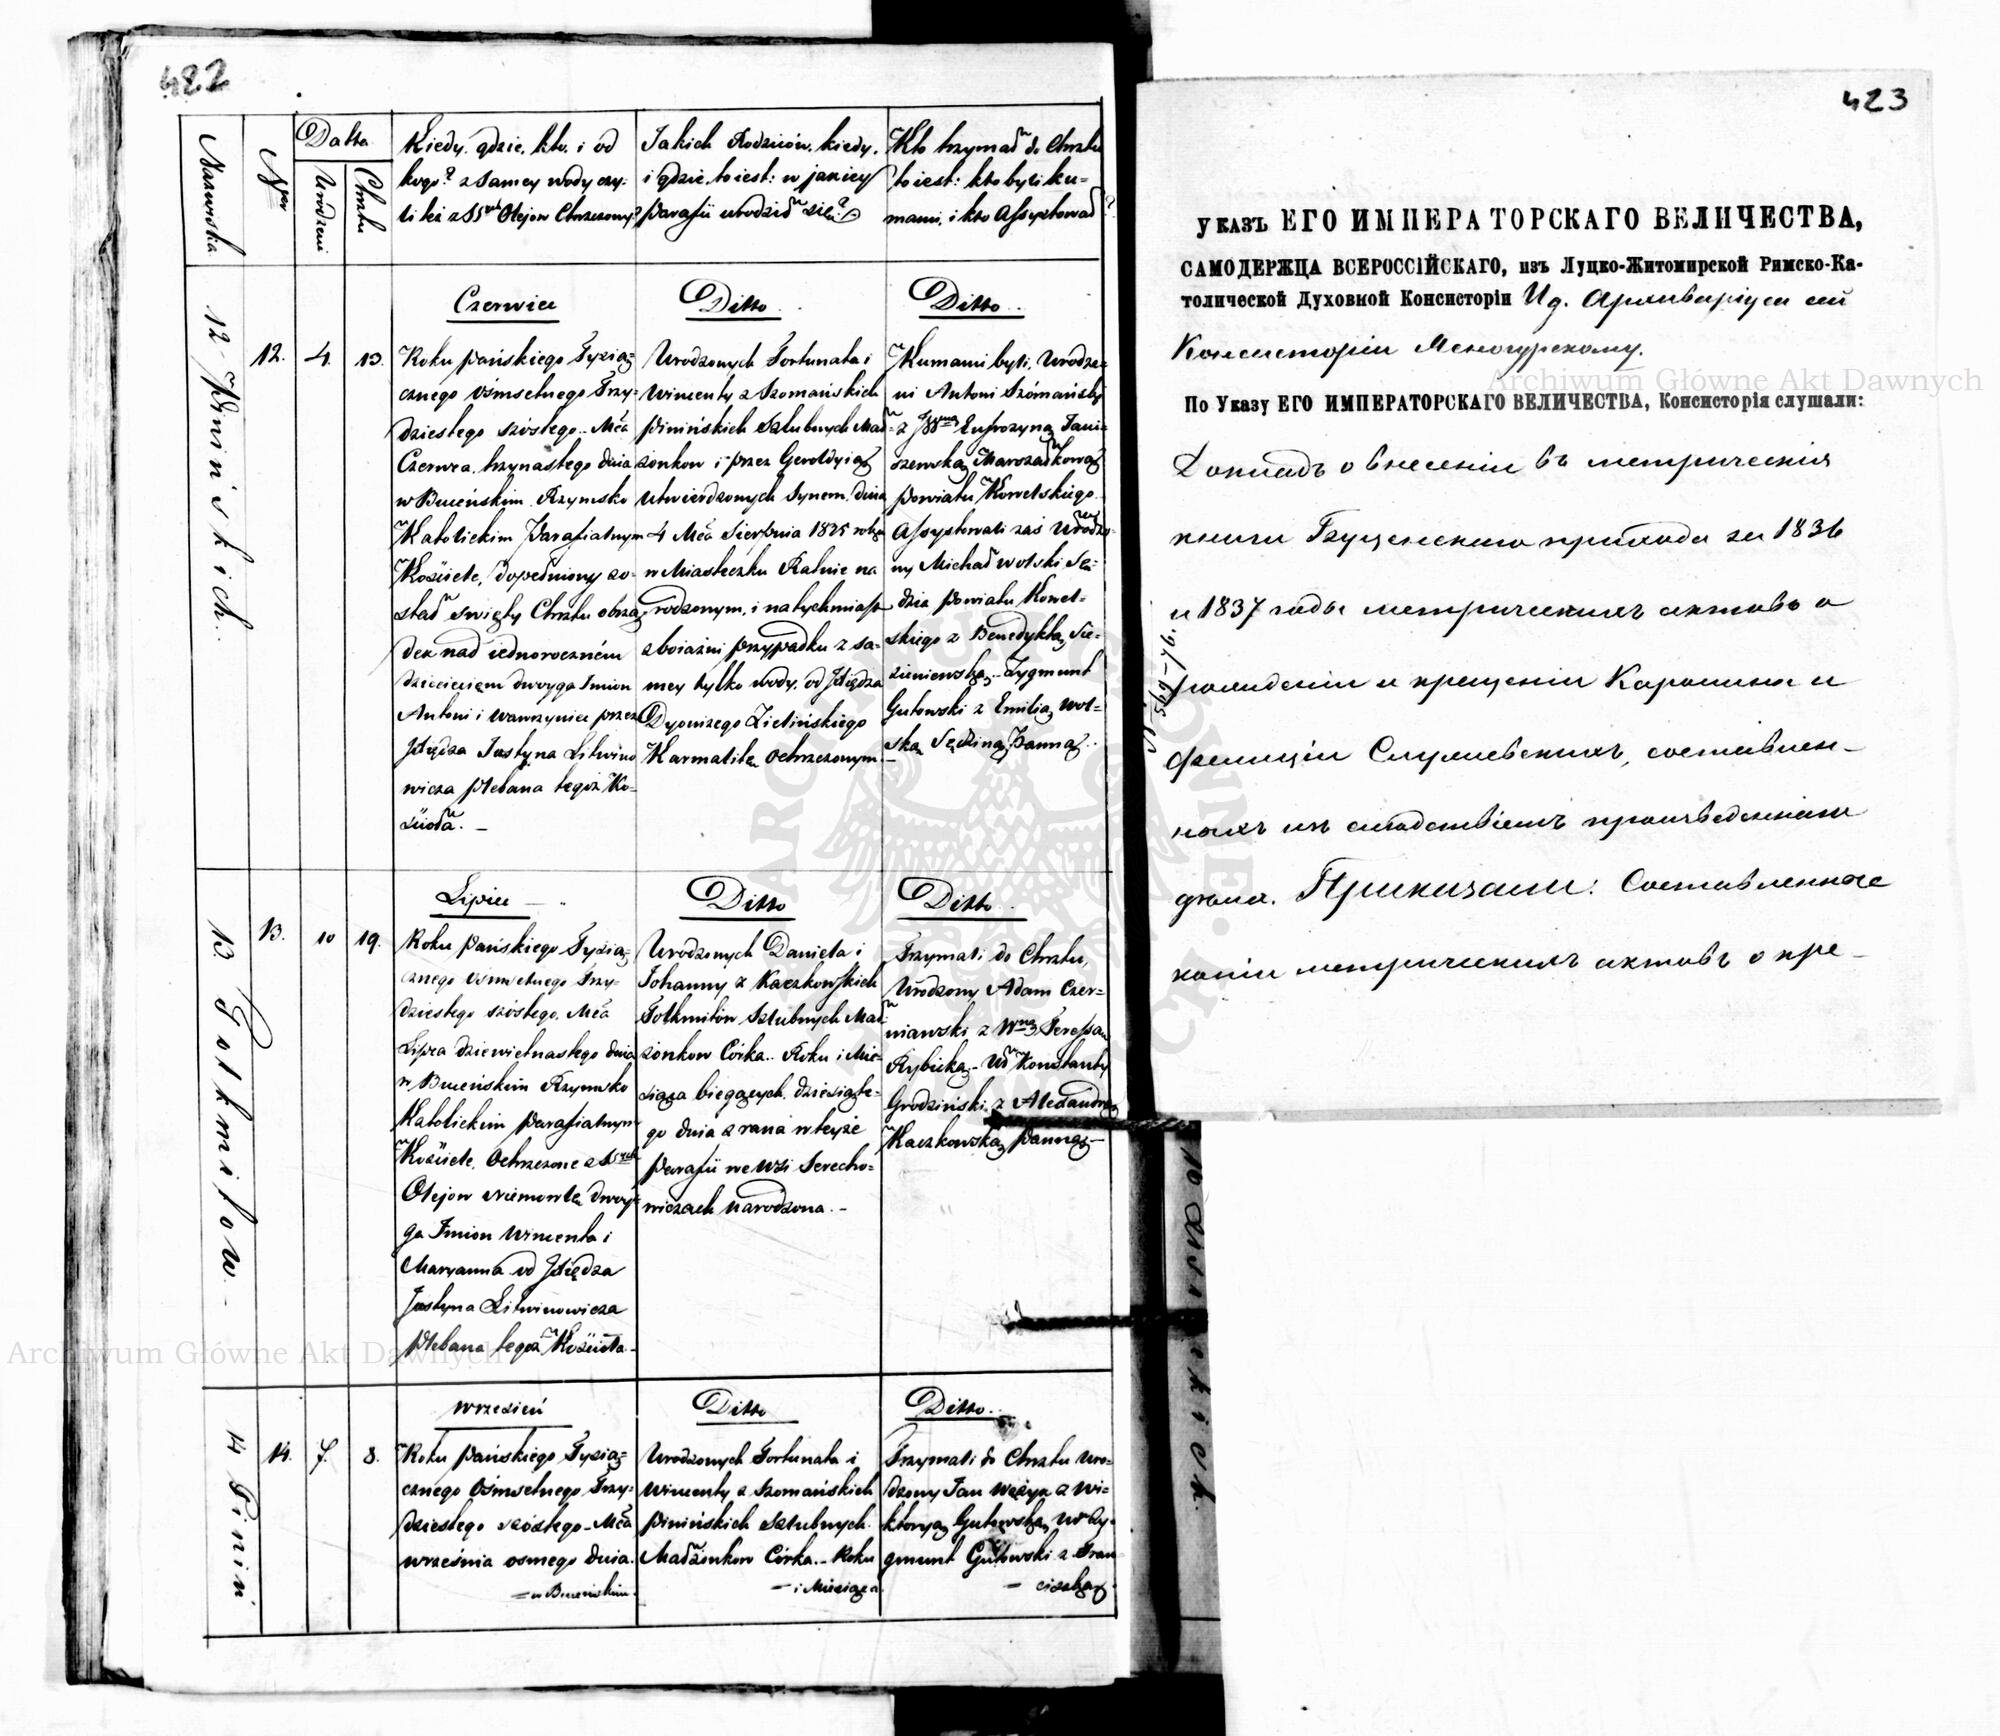 422
Nazwiska
Nrer
Datta
Urodzeni
Chrztu
Kiedy, gdzie, kto, i od
kogo? z samey wody czy
li też z SSych Olejow Chrzczony?
Jakich Rodziców, kiedy,
i gdzie, to iest: w jakiey
Parafii urodził się?
Kto trzymał do Chrztu
to iest: kto byli ku=
mami, i kto Assystował?
12 Pinińskich.
12.
4.
13.
Czerwiec
Roku Pańskiego Tysiąc
cznego Ośmsetnego Trzy-
dziestego szóstego Mca
Czerwca, trzynastego dnia
w Buceńskim Rzymsko
Katolickim Parafialnym
Kościele, dopełniony zo-
stał święty Chrztu obrzą
dek nad iednoroczném
dziecięciem dwoyga Imion
Antoni i Wawrzyniec przez
Xiędza Justyna Litwino
wicza Plebana tegoż Ko-
ścioła. –
Ditto
Urodzonych Fortunata i
Wincenty z Szomańskich
Pinińskich Szlubnych Mał
żonkow i przez Heroldyią
utwierdzonych Synem, dnia
4 Mca Sierpnia 1835 roku
w Miasteczku Ratnie na
rodzonym, i natychmiast
z boiaźni przypadku z sa-
mey tylko wody, od Xiędza
Dyonizego Zielińskiego
Karmelitę Ochrzczonym.
Ditto
Kumami byli, Urodze-
ni Antoni Szómański
z JWną Eufrozyną Jani-
szewską Marszałkową
Powiatu Kowelskiego.
Assystowali zaś Urodzo-
ny Michał Wolski Sę-
dzia Powiatu Kowel-
skiego z Benedyktą Sie-
Zygmunt
Gutowski z Emilią Wol-
ską Sędziną Panną.
13 Tołkmitow.
13.
10
19.
Lipiec
Roku Pańskiego Tysiąc=
cznego Ośmsetnego Trzy-
dziestego szóstego, Mca
Lipca dziewietnastego dnia
w Buceńskim Rzymsko
Katolickim Parafialnym
Kościele, Ochrzczone z SSych
Olejow niemowle dwoy-
ga Imion Wincenta i
Maryanna od Xiędza
Justyna Litwinowicza
Plebana tegoż Kościoła
Ditto
Urodzonych Daniela i
Johanny z Kaczkowskich
Tołkmitow Szlubnych Mał
żonkow Córka. Roku i Mie-
siąca biegących, dziesiąte-
go dnia z rana w teyże
Parafii we Wsi Serecho-
wiczach narodzona. –
Ditto
Trzymali do Chrztu,
Urodzony Adam Czer-
niawski z Wną Teressą
Rybicką – Ur Konstanty
Grodziński z Alexandrą
Kaczkowską Panną –
14 Piniń
14.
7.
8.
Wrzesień
Roku Pańskiego Tysiąc=
cznego Ośmsetnego Trzy-
dziestego szóstego – Mca
Września osmego dnia
= w Buceńskim
Ditto
Urodzonych Fortunata i
Wincenty z Szomańskich
Pinińskich Szlubnych
Małżonkow Córka. – Roku
– i Miesiąca
Ditto
Trzymali do Chrztu Uro-
dzony Jan Wężyk z Wi-
ktoryą Gutowską, Ur Zy-
gmunt Gutowski z Fran
– ciszką
423
УКАЗЪ ЕГО ИМПЕРАТОРСКАГО ВЕЛИЧЕСТВА,
САМОДЕРЖЦА ВСЕРОССІЙСКАГО, изъ Луцко-Житомирской Римско-Ка-
толической Духовной Консисторіи И д. Архиваріуса сей
Консисторіи Ясногурскому.
По Указу ЕГО ИМПЕРАТОРСКАГО ВЕЛИЧЕСТВА, Консисторія слушали:
Докладъ о внесеніи въ метрическія
книги прихода за 1836
и 1837 годы метрическихъ актовъ о
рожденіи и крещеніи Каролины и
Фелиціи составлен-
ныхъ изъ слѣдствіемъ произведеннымъ
дѣла. Приказали: Составленные
копіи метрическихъ актовъ о кре-
Archiwum Główne Akt Dawnych
Archiwum Główne Akt Dawnych